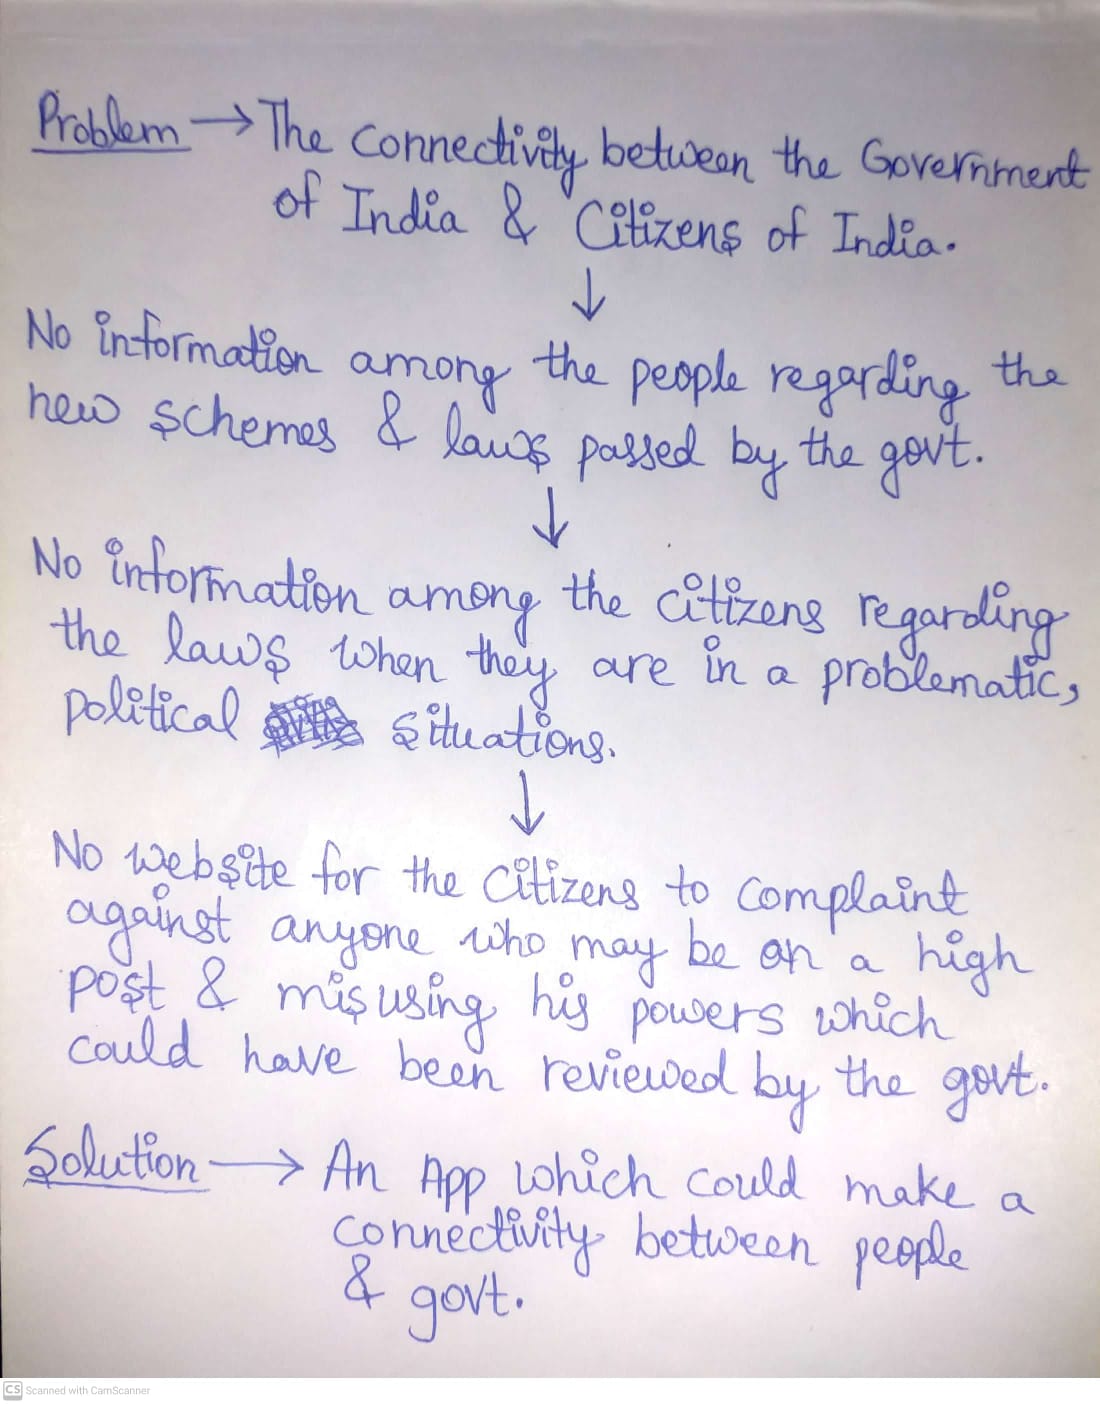 Problem → The connectivity between the Government
of India & Citizens of India.
↓
No information among the people regarding the
new schemes & laws passed by the govt.
↓
No information among the citizens regarding
the laws when they are in a problematic,
political situations.
↓
No website for the citizens to complaint
against anyone who may be on a high
post & misusing his powers which
could have been reviewed by the govt.
Solution → An App which could make a
connectivity between people
& govt.
CS Scanned with CamScanner